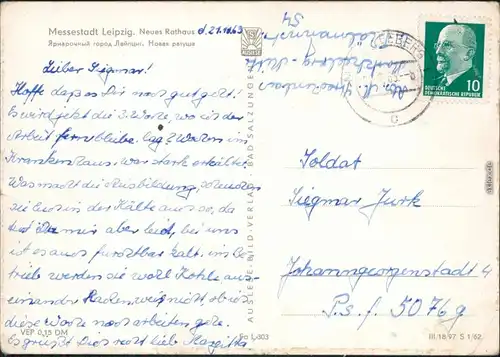 Messestadt Leipzig. Neues Rathaus
Ярмарочный город Лейпциг. Новая ратуша
d. 21.1.63
Lieber Siegmar!
Hoffe daß es Dir noch gut geht.
Es wird jetzt die 3. Woche, wo ich der
Arbeit fernbleibe. lag 2 Wochen im
Krankenhaus, war stark erkältet.
Was macht die Ausbildung,
sie Euch in der Kälte aus so, da
tust Du mir aber leid, bei uns
ist es auch furchtbar kalt, im Be-
trieb werden sie wohl Kohle aus-
einander hacken, weiß nicht ob ich
diese Woche noch arbeiten gehe.
Es grüßt Dich recht lieb
VEP 0,15 DM
Fo L 303
AUSLESE-BILD-VERLAG BAD SALZUNGEN
DEUTSCHE
DEMOKRATISCHE REPUBLIK
10
c
Soldat
Siegmar Jurk
Johanngeorgenstadt 4
P.s.f. 5076g
III/18/97 S 1/62